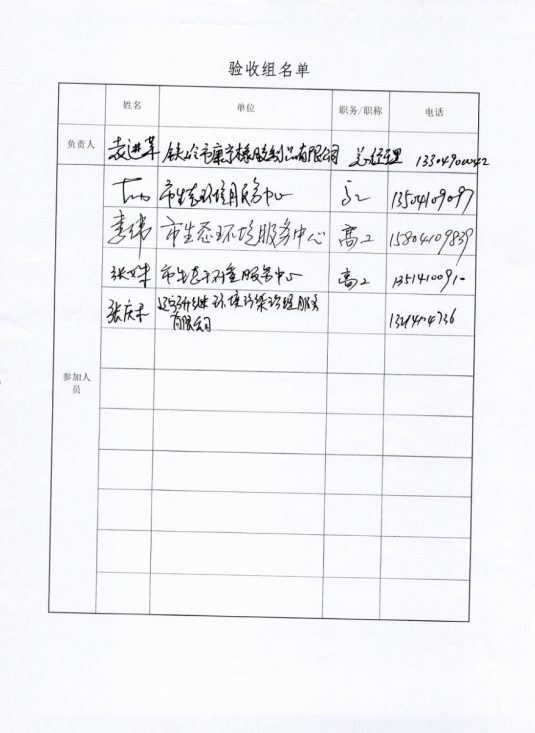 验收组名单
姓名 单位 职务/职称 电话
负责人 袁进革 铁岭市康宁橡胶制品有限公司 总经理 13304900042
市生态环境服务中心 高工 13504109097
李伟 市生态环境服务中心 高工 15804109839
市生态环境服务中心 高工 1351410091
张庆 环境污染治理服务
有限公司
参加人
员